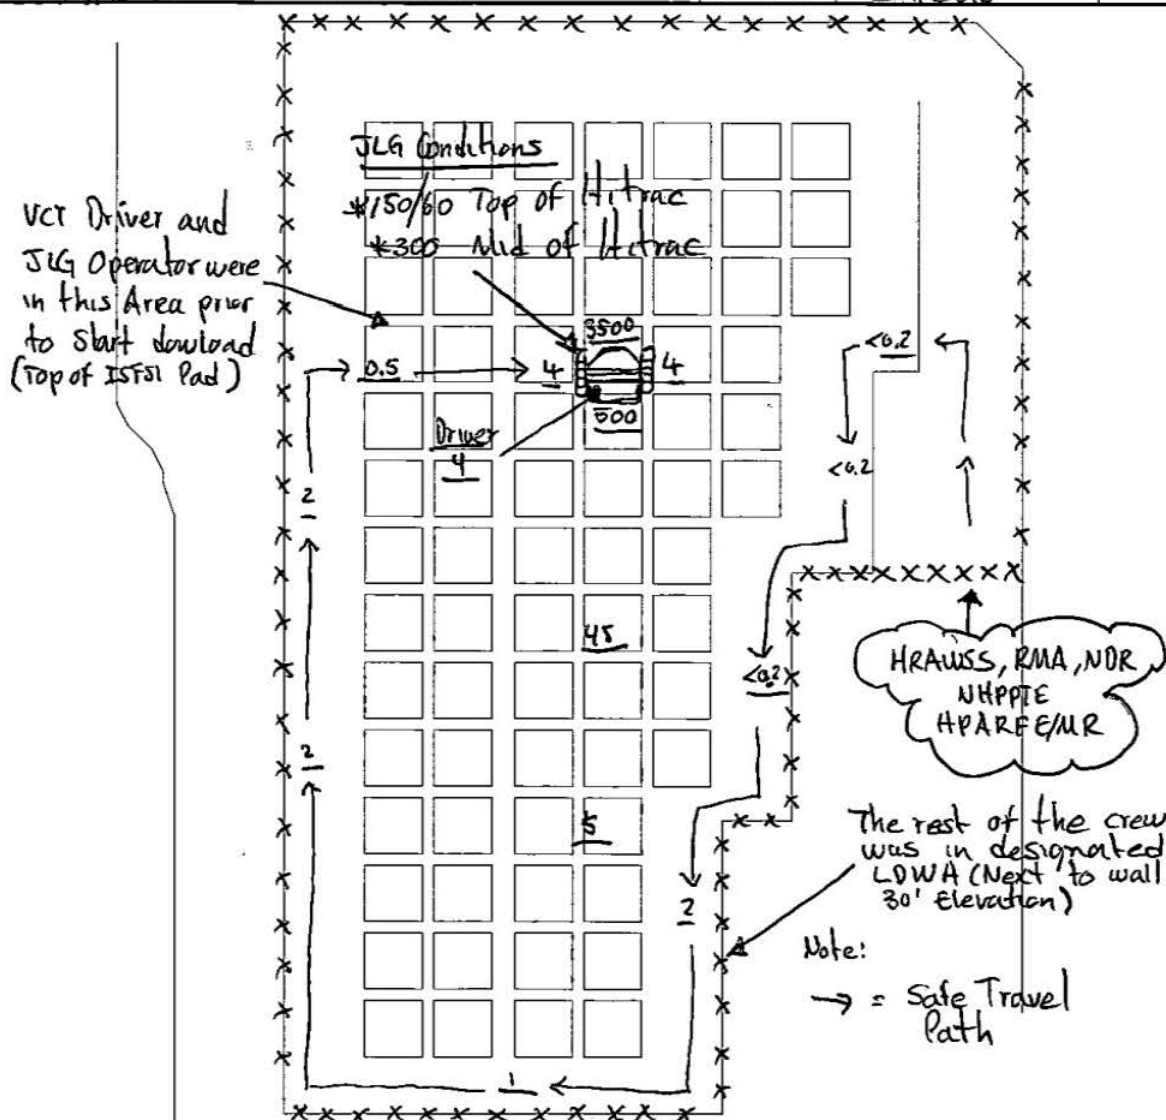 JLG Conditions
*150/60 Top of Hitrac
*300 Mid of Hitrac
VCT Driver and
JLG Operator were
in this Area prior
to start dowload
(Top of ISFSI Pad)
3500
<0.2
0.5
4
4
500
Driver
4
<0.2
2
45
<0.2
HRAWSS, RMA, NDR
NHPPTE
HPARFE/MR
2
5
The rest of the crew
was in designated
LDWA (Next to wall
30' Elevation)
2
Note:
→ = Safe Travel
Path
1